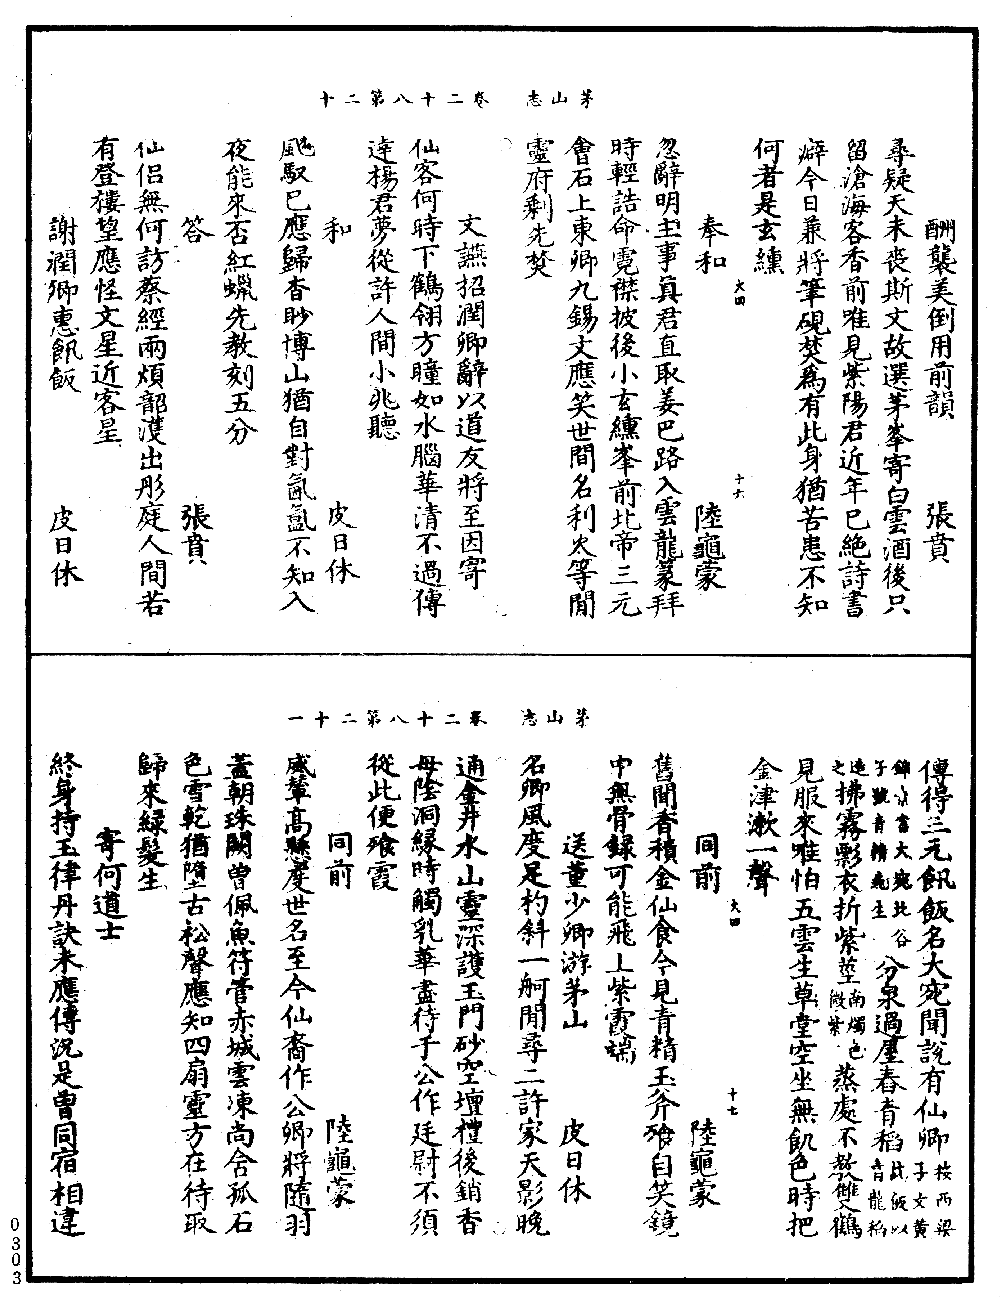 茅山志　卷二十八第二十
酬襲美倒用前韻　張賁
尋疑天未喪斯文故選茅峯寄白雲酒後只
留滄海客香前唯見紫陽君近年已絶詩書
癖今日兼將筆硯焚為有此身猶苦患不知
何者是玄纁
奉和　陸龜蒙
大四　十六
忽辭明主事眞君直取姜巴路入雲龍篆拜
時輕誥命霓襟披後小玄纁峯前北帝三元
會石上東卿九錫文應笑世間名利火等閒
靈府剩先焚
文讌招潤卿辭以道友將至因寄
仙客何時下鶴翎方瞳如水腦華清不過傳
達楊君夢從許人間小兆聽
和　皮日休
飈馭已應歸杳眇博山猶自對氤氳不知入
夜能來否紅蠟先教刻五分
答　張賁
仙侶無何訪蔡經兩煩韶濩出彤庭人間若
有登樓望應怪文星近客星
謝潤卿惠飿飯　皮日休
茅山志　卷二十八第二十一
傳得三元飿飯名大宛聞說有仙卿按西梁子文黃
錦　富大宛北谷子號青精先生分泉過屋舂青稻此飯以青龍稻
為之拂霧影衣折紫莖南燭色微紫蒸處不教雙鶴
見服來唯怕五雲生草堂空坐無飢色時把
金津漱一聲
同前　陸龜蒙
大四　十七
舊聞香積金仙食今見青精玉斧飧自笑鏡
中無骨録可能飛上紫霞端
送董少卿游茅山　皮日休
名卿風度足杓斜一舸閒尋二許家天影晚
通金井水山靈深護玉門砂空壇禮後銷香
母陰洞縁時觸乳華盡待于公作廷尉不須
從此便飱霞
同前　陸龜蒙
威輦高懸度世名至今仙裔作公卿將隨羽
蓋朝珠闕曽佩魚符管赤城雲凍尚含孤石
色雪乾猶墮古松聲應知四扇靈方在待取
歸來緑髮生
寄何道士
終身持玉律丹訣未應傳況是曽同宿相違
0303